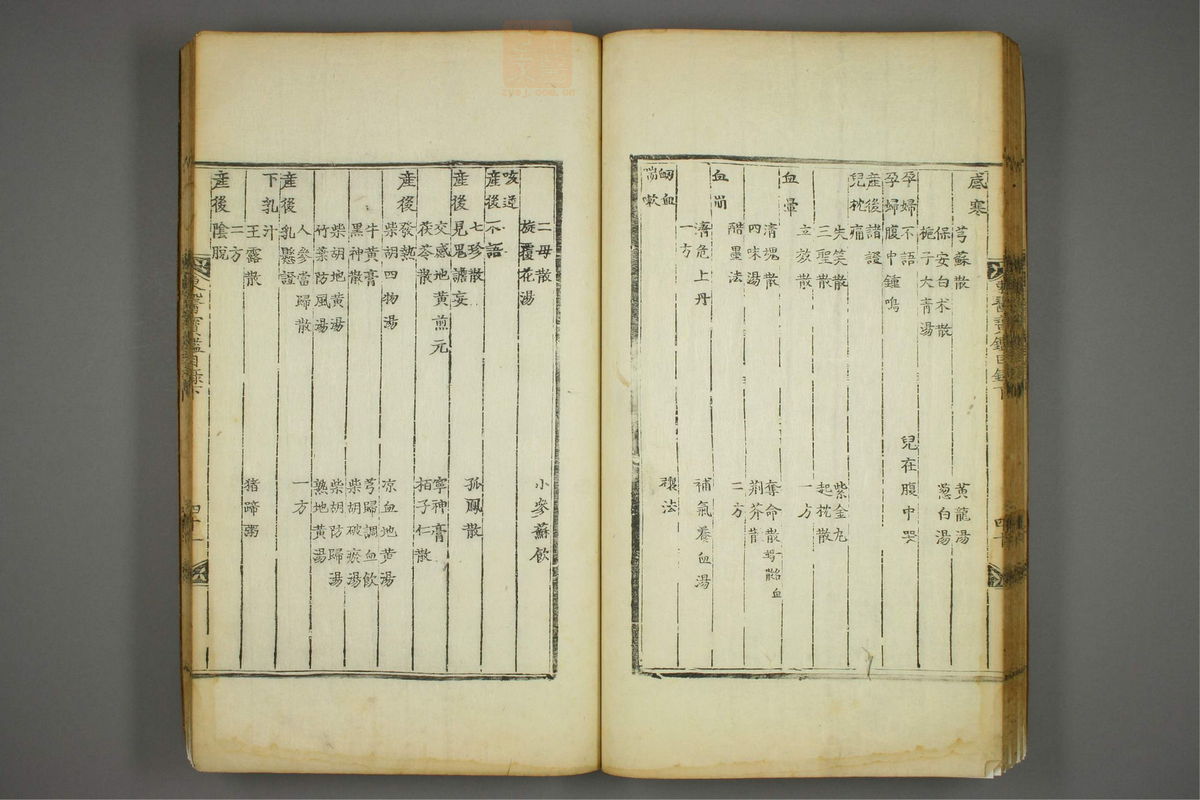 感寒
芎蘇散 黃龍湯
保安白朮散 葱白湯
梔子大青湯
孕婦不語
孕婦腹中鍾鳴 兒在腹中哭
產後諸證
兒枕痛
失笑散 紫金丸
三聖散 起枕散
立效散 一方
血暈
清魂散 奪命散
四味湯 荊芥散
醋墨法 二方
血崩
濟危上丹 補氣養血湯
一方
衂血
喘嗽
二母散 小參蘇飲
旋覆花湯
咳逆
產後不語
七珍散 孤鳳散
產後見鬼譫妄
交感地黃煎元 寧神膏
茯苓散 栢子仁散
產後發熱
柴胡四物湯 凉血地黃湯
牛黃膏 芎歸調血飲
黑神散 柴胡破瘀湯
柴胡地黃湯 柴胡防歸湯
竹葉防風湯 熟地黃湯
人參當歸散 一方
產後乳懸證
下乳汁
玉露散 猪蹄粥
二方
產後陰脫
東醫寶鑑目錄下
四十